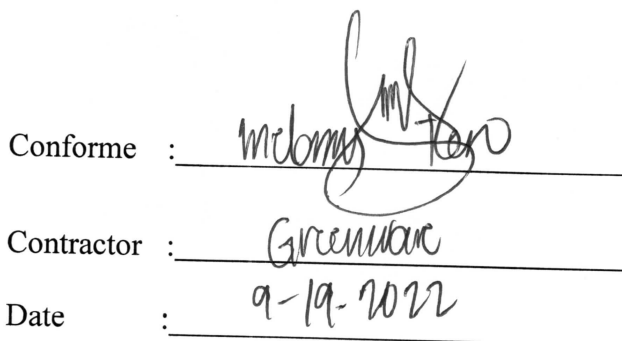 Conforme :
Contractor : Greenware
Date : 9-19-2022